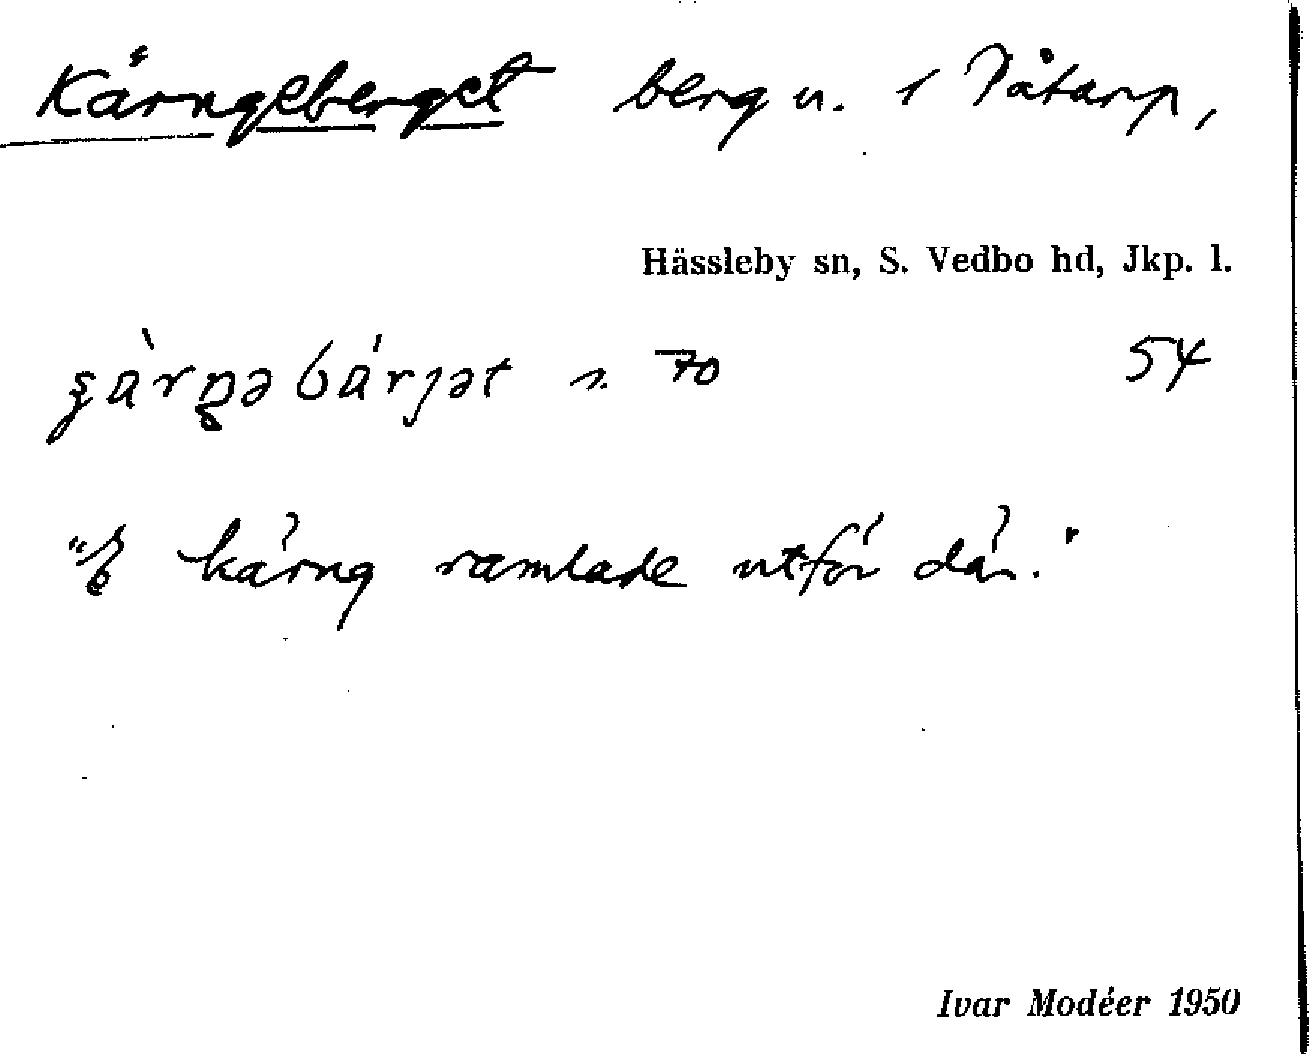 Kärngeberget berg n. i Påtarp,
Hässleby sn, S. Vedbo hd, Jkp. l.
n. 70 54
kärng ramlade utför där."
Ivar Modéer 1950